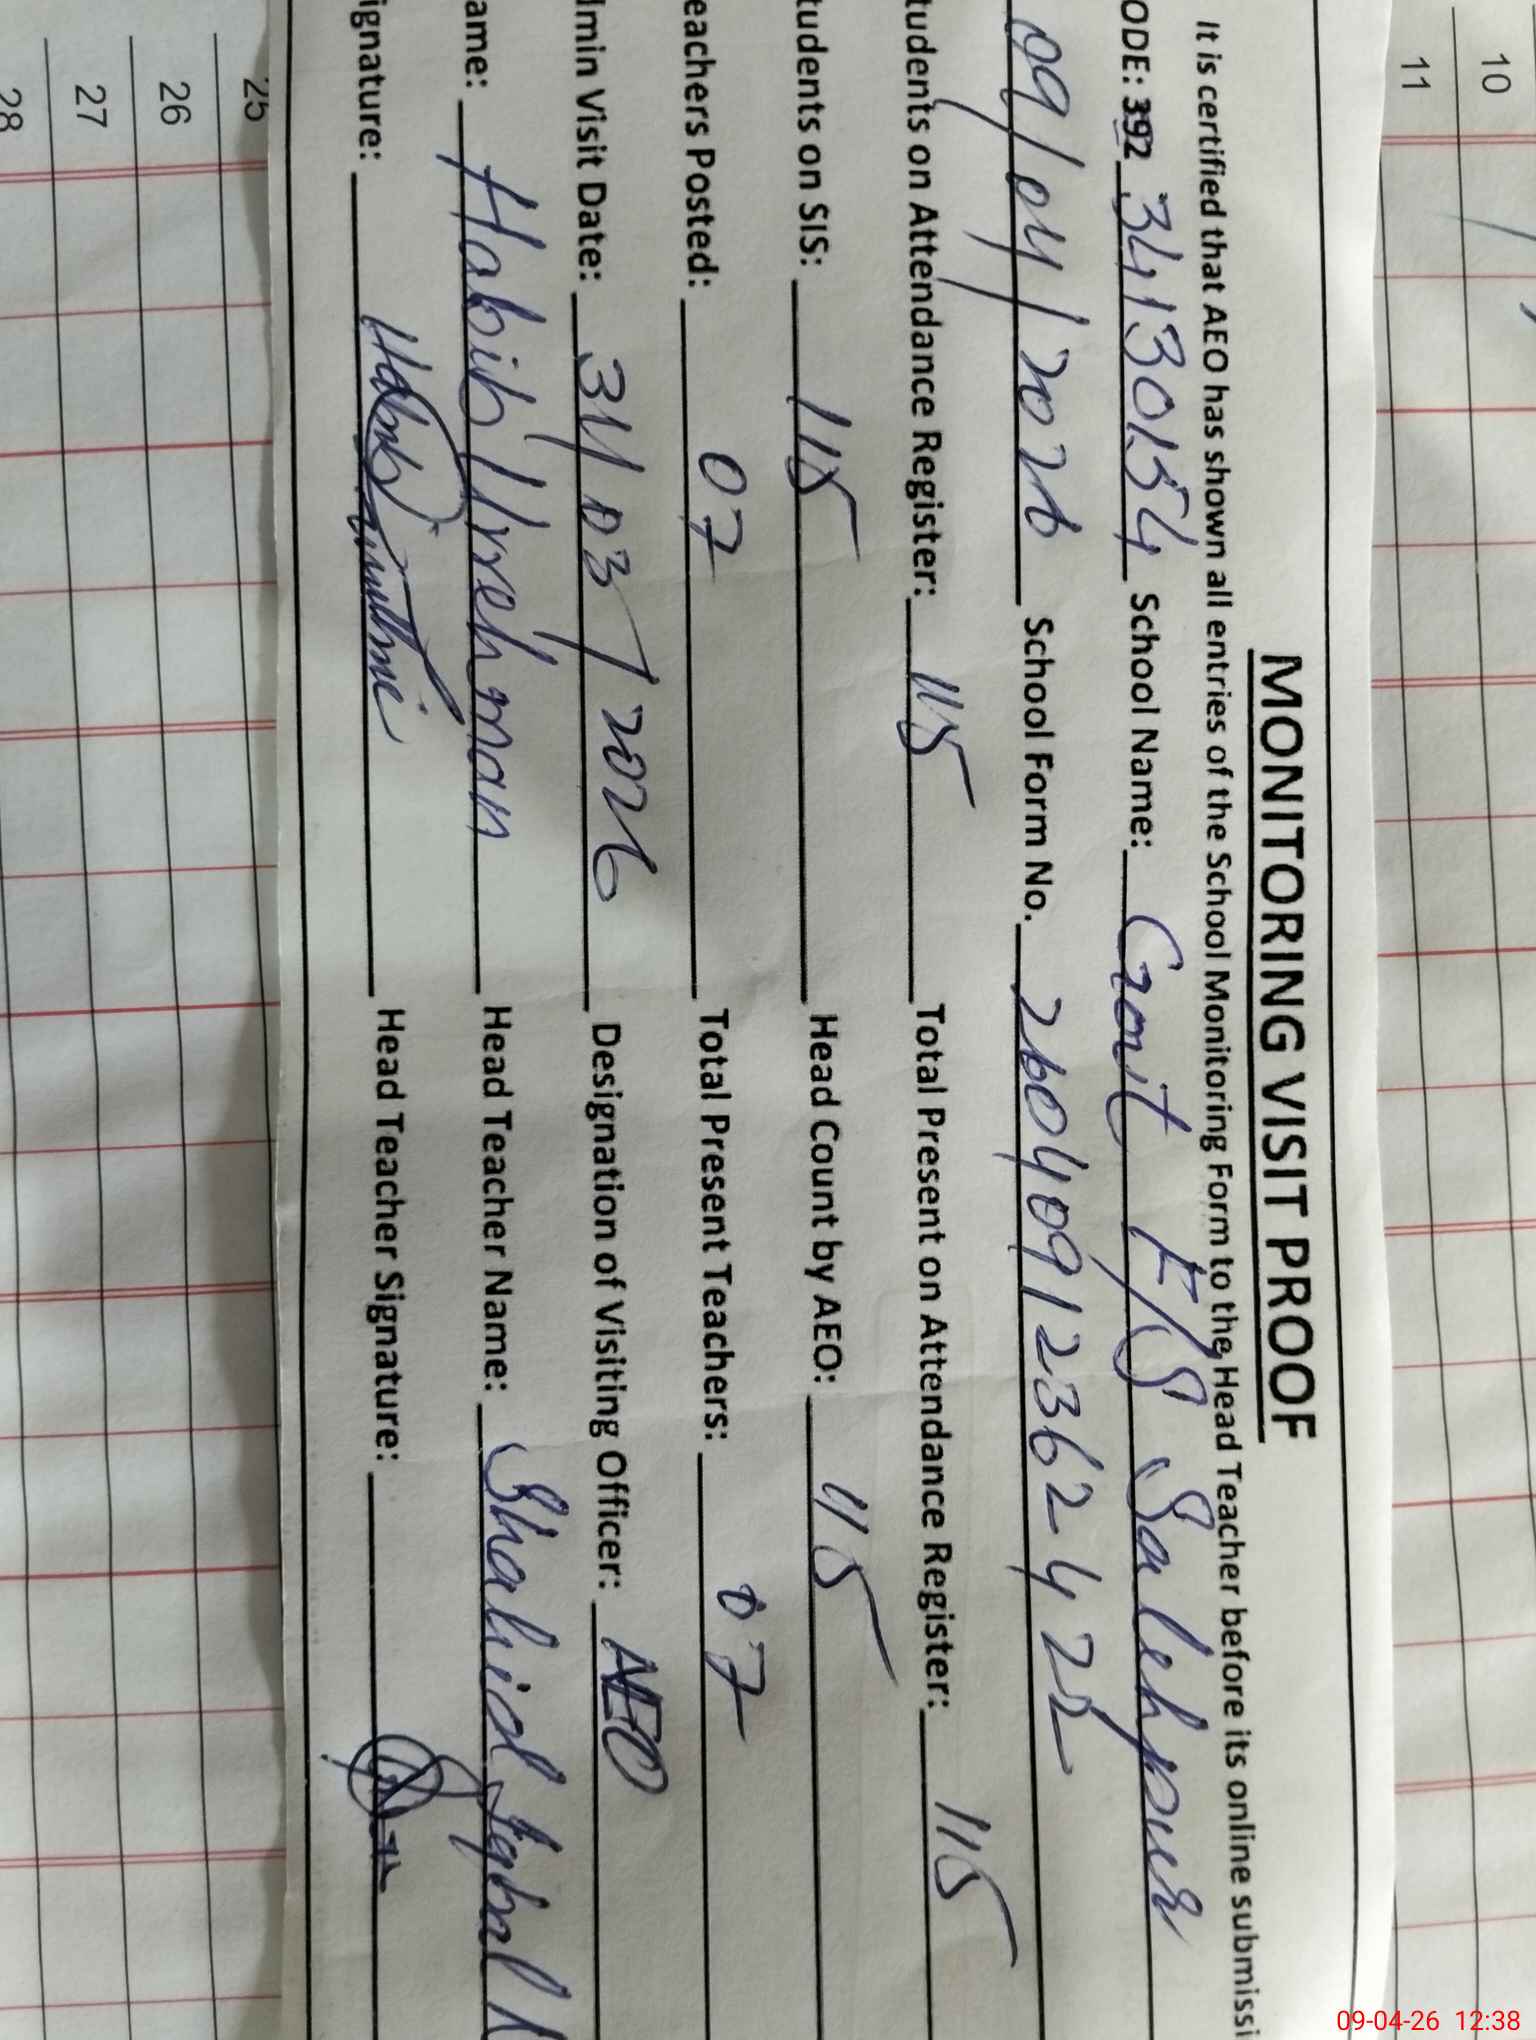 10
11
MONITORING VISIT PROOF
It is certified that AEO has shown all entries of the School Monitoring Form to the Head Teacher before its online submissi
ODE: 392 34130154 School Name: Govt E/S Salehpur
09/04/2026 School Form No. 26040912362422
tudents on Attendance Register: 115 Total Present on Attendance Register: 115
tudents on SIS: 115 Head Count by AEO: 115
eachers Posted: 07 Total Present Teachers: 07
dmin Visit Date: 31/03/2026 Designation of Visiting Officer: AEO
ame: Habib Urrehman Head Teacher Name: Shahid Iqbal
ignature: Head Teacher Signature:
25
26
27
28
09-04-26 12:38